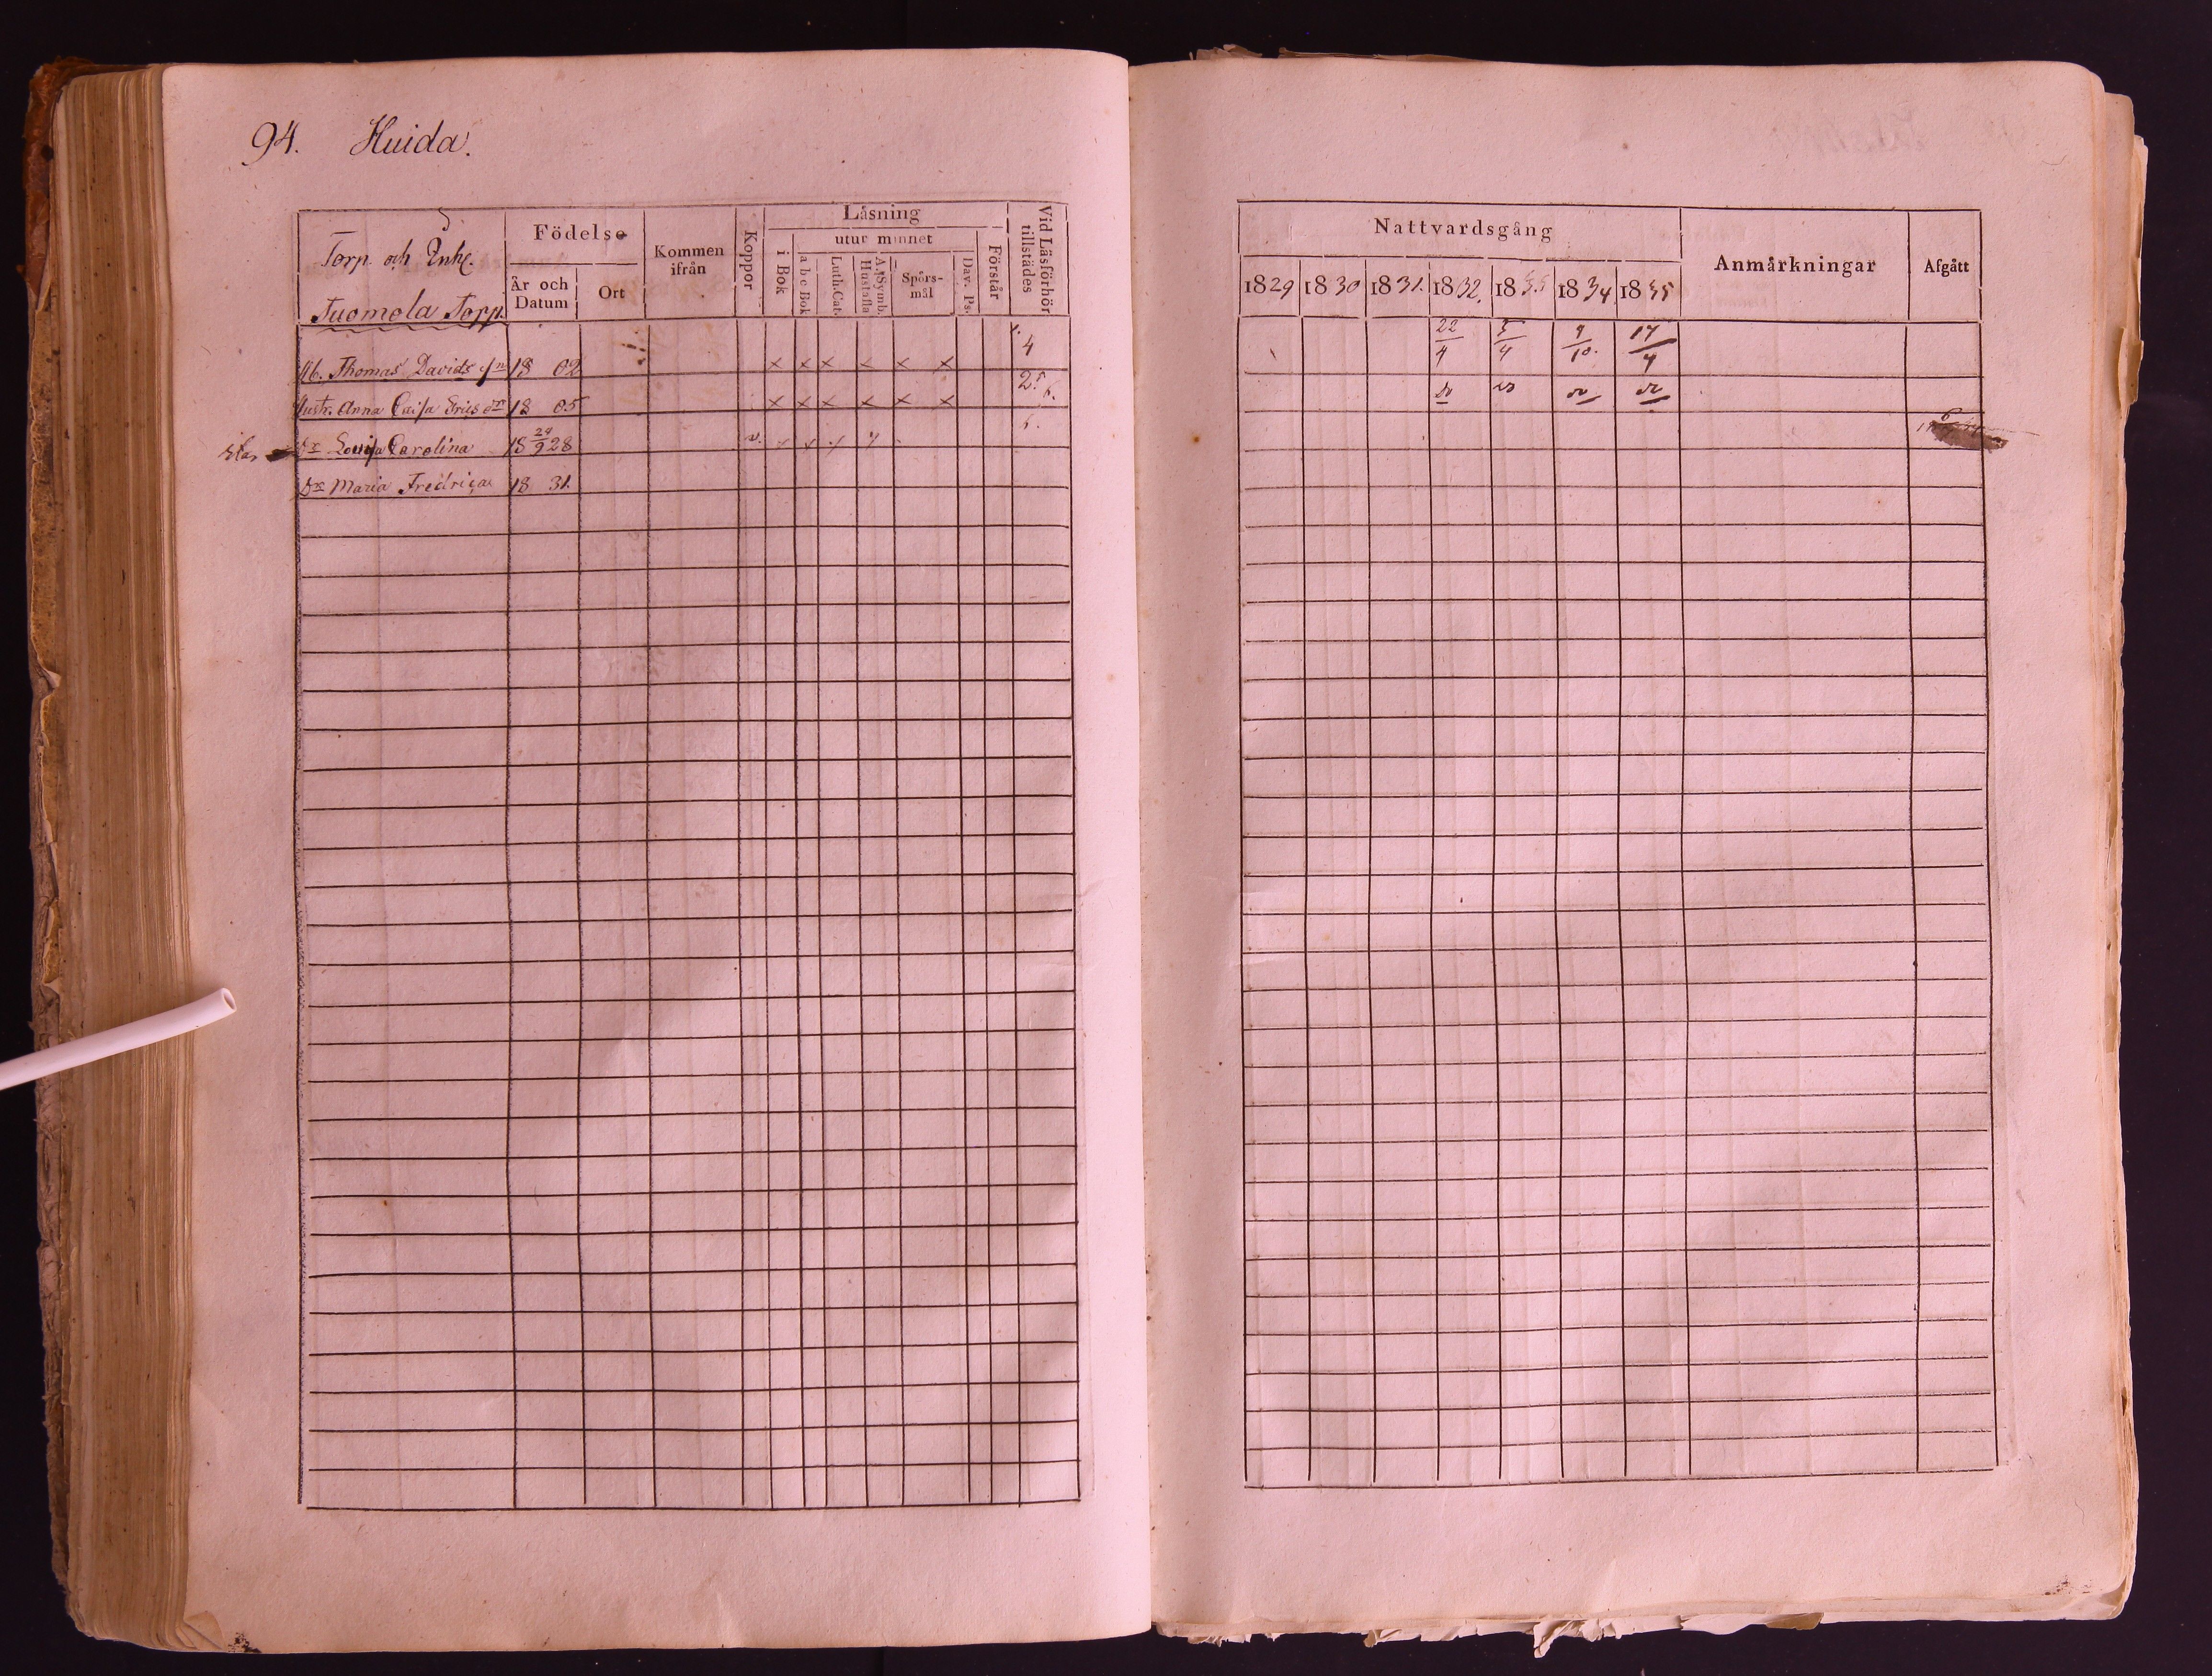 94. Huida.
Torp. och Enke.
Tuomela Torp.
Födelse
År och Datum
Ort
Kommen ifrån
Koppor
Läsning
utur minnet
i Bok
a b c Bok
Luth. Cat.
A. Symb. Hustafla
Spörs-mål
Dav. Ps.
Förstår
Vid Läsförhör tillstädes
Nattvardsgång
1829 1830 1831. 1832. 1835 1834 1835
Anmärkningar
Afgått
Ab. Thomas Davids sn 18 02 × × × × × × 4 22/4 5/4 9/10. 17/4
Hust. Anna Caisa Erics dr 18 05 × × × × × ×
Dr Lovisa Carolina 18 24/9 28 v.
Dr Maria Fredrica 18 31.